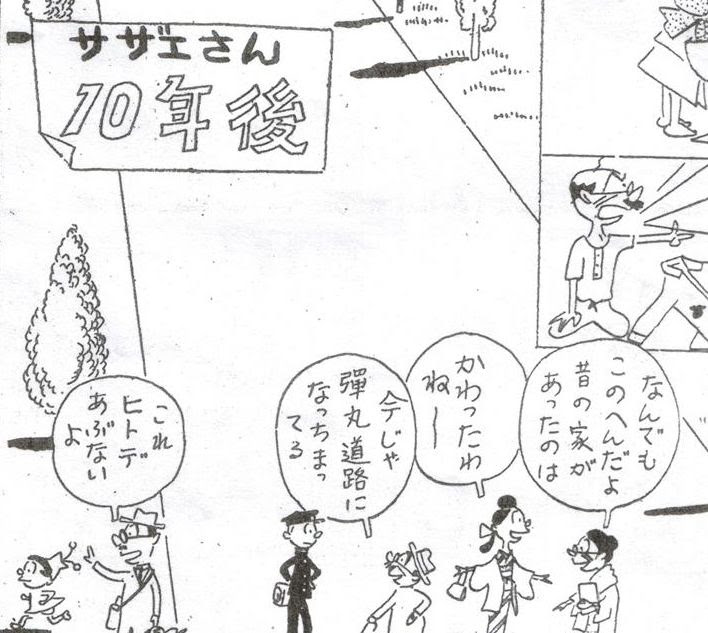 サザエさん
10年後
なんでも
このへんだよ
昔の家が
あったのは
かわったわ
ねー
今じゃ
彈丸道路に
なっちまっ
てる
これ
ヒトデ
あぶない
よ